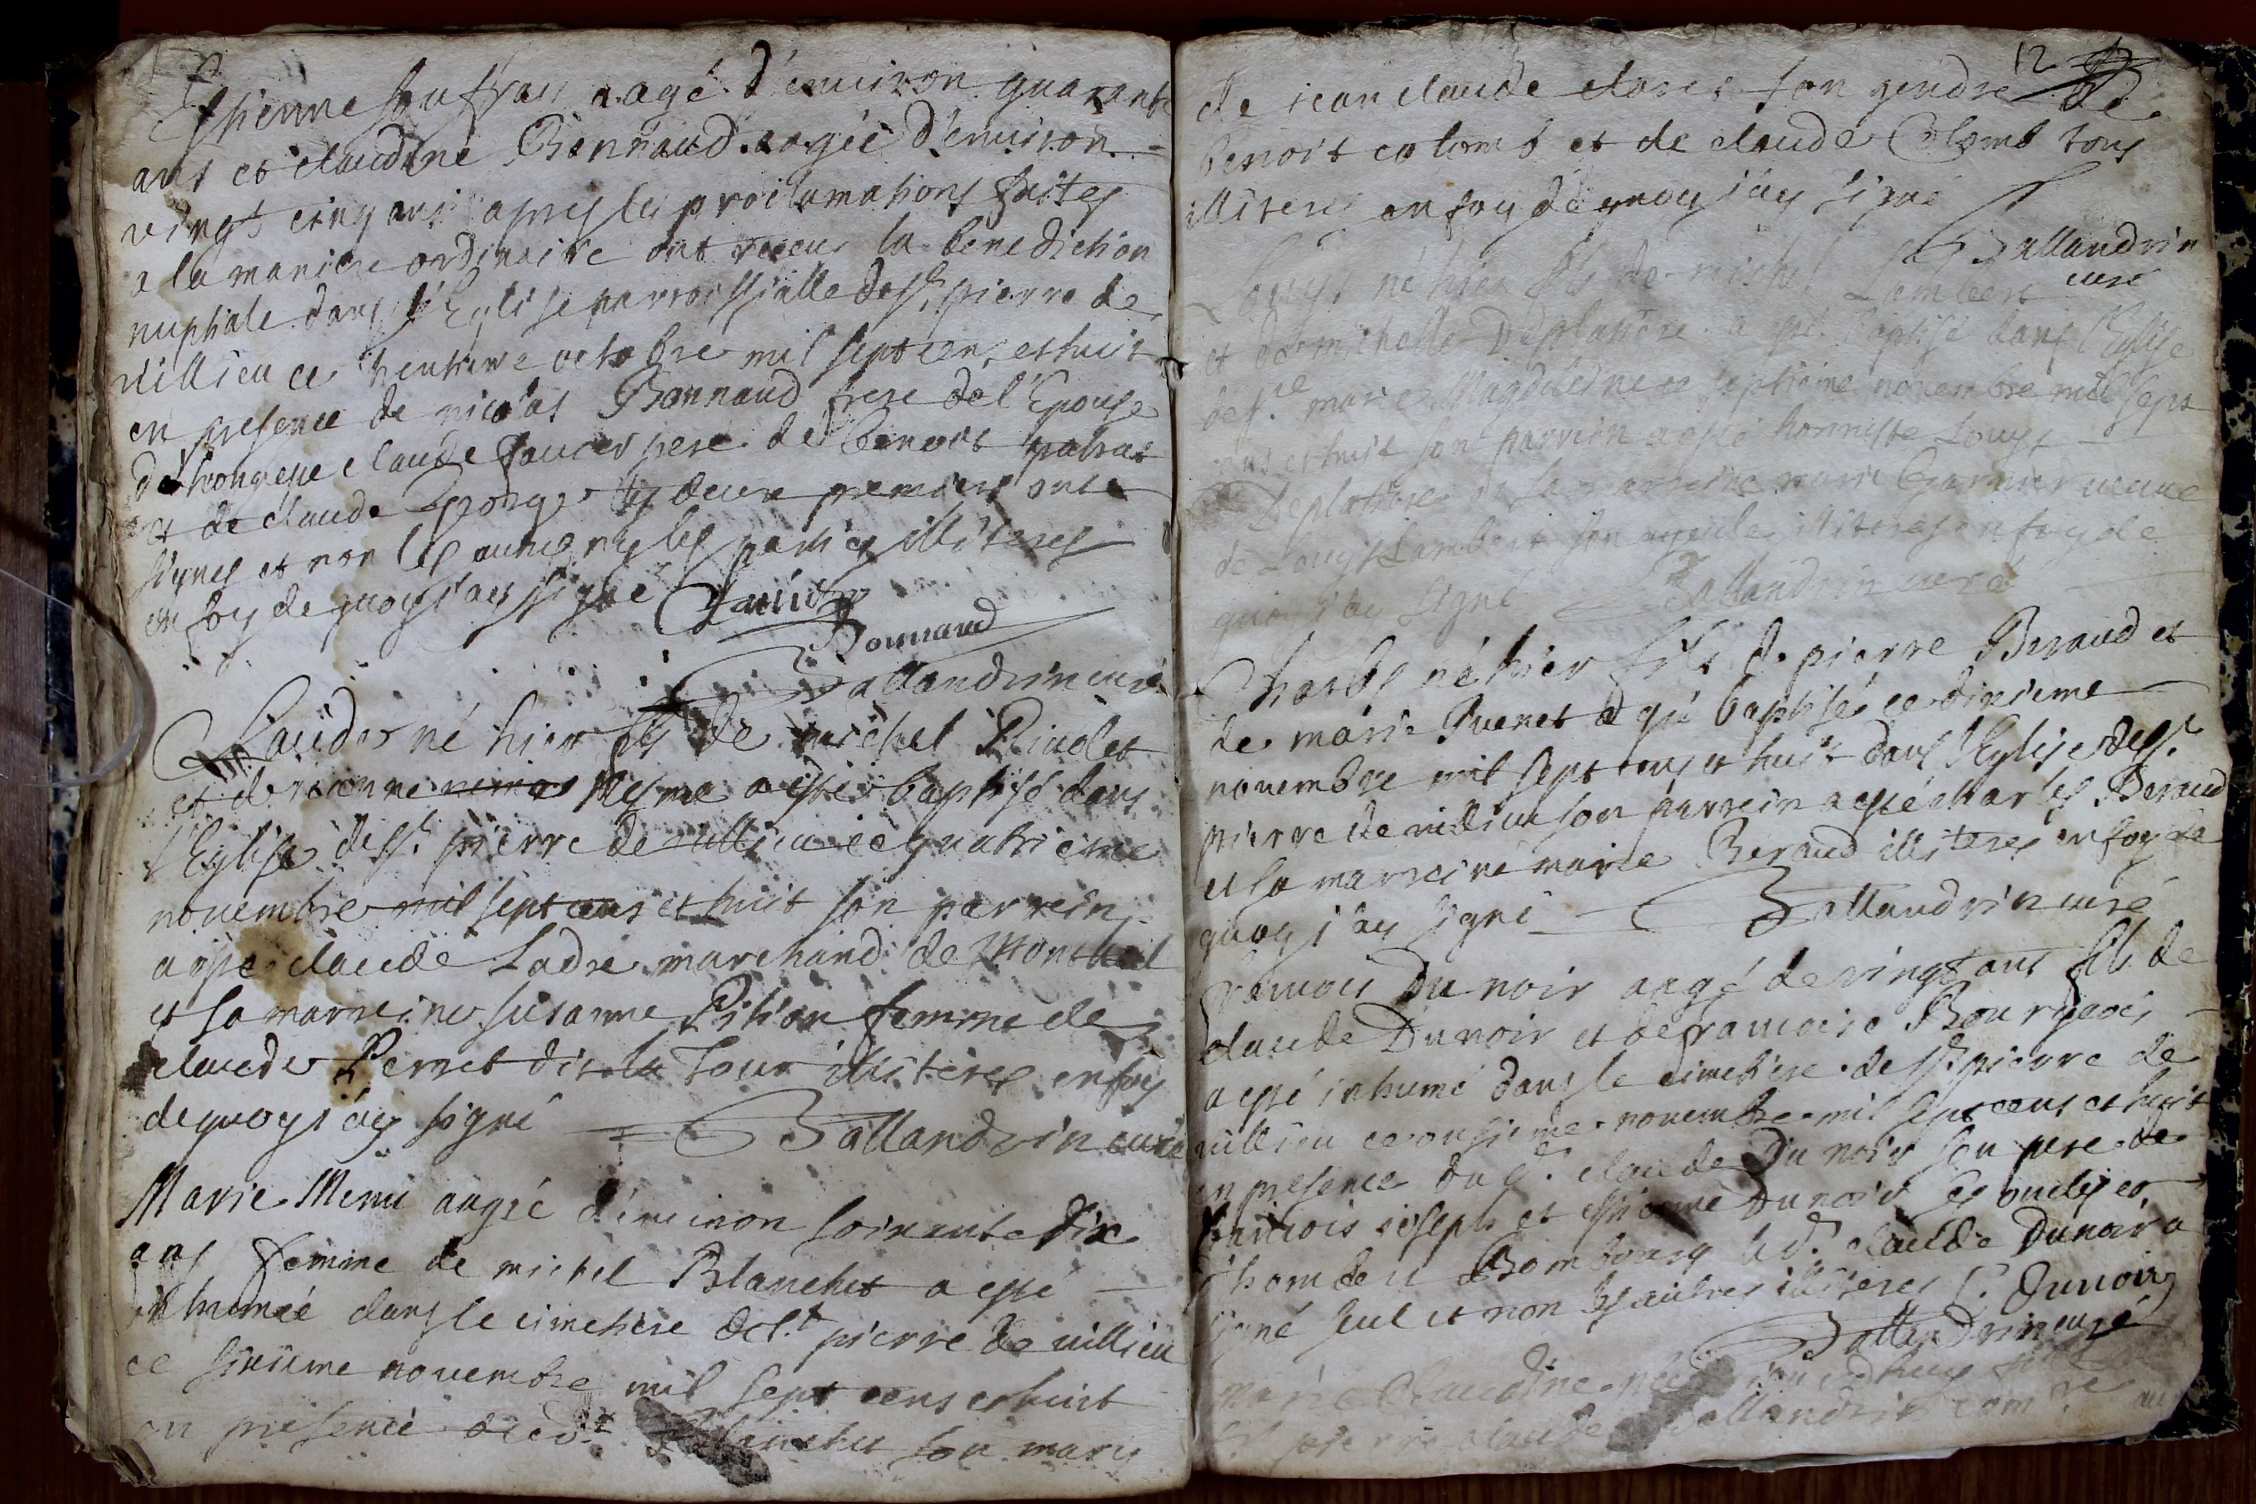 Estienne aagé d'environ quarante
ans et claudine Bonnaud aagée d'environ
vingt cinq ans apres les proclamations faites
a la maniere ordinaire ont receu la benediction
nuptiale dans l'Eglise parroissialle de st. pierre de
villieu ce octobre mil sept cens et huit
en presence de nicolas Bonnaud frere de l'Epouse
claude pere de Benoist
et de claude les deux premiers ont
signes et non les autres ny les parties illiteres
en foy de quoy i'ay signé
Bonnaud
Ballandrin curé
Claude né hier fils de michel Riuolet
et de ieanne Mesme a esté baptisé dans
l'Eglise de st. pierre de villieu ce quatrieme
novembre mil sept cens et huit son parrein
a esté claude Ladre marchand de
et sa marreine susanne Pition femme de
claude Perret dit la Tour illiteres en foy
de quoy i'ay signé Ballandrin curé
Marie Menu aagée d'environ soixante dix
ans femme de michel Blanchet a esté
inhumée dans le cimetiere de st. pierre de villieu
ce sixieme novembre mil sept cens et huit
en presence dud.t Blanchet son mary
12
de iean claude son gendre de
benoist colomb et de claude Colomb tous
illiteres en foy de quoy i'ay signé
Ballandrin
curé
né hier fils de michel Lambert
et de michelle Deplatiere a esté baptisé dans l'Eglise
de s.te marie Magdeleine ce septieme novembre mil sept
cens et huit son parrein a esté honneste Louys
Deplatiere et sa marreine marie Garnier veuve
de Louys Lambert son ayeule illiteres en foy de
quoy i'ay signé Ballandrin curé
Charles né hier fils de pierre Beraud et
de marie a esté baptisé ce dixieme
novembre mil sept cens et huit dans l'Eglise de st.
pierre de villieu son parrein a esté charles Beraud
et sa marreine marie Beraud illiteres en foy de
quoy i'ay signé Ballandrin curé
Dunoir aagé de vingt ans fils de
claude Dunoir et de francoise Bourgeois
a esté inhumé dans le cimetiere de st. pierre de
villieu ce onsieme novembre mil sept cens et huit
en presence du s.r claude Dunoir son pere de
francois ioseph et estienne Dunoir ses oncles et
thomas Bombourg led. claude Dunoir a
signé seul et non les autres illiteres C. Dunoir
Ballandrin curé
marie Claudine
claude Ballandrin